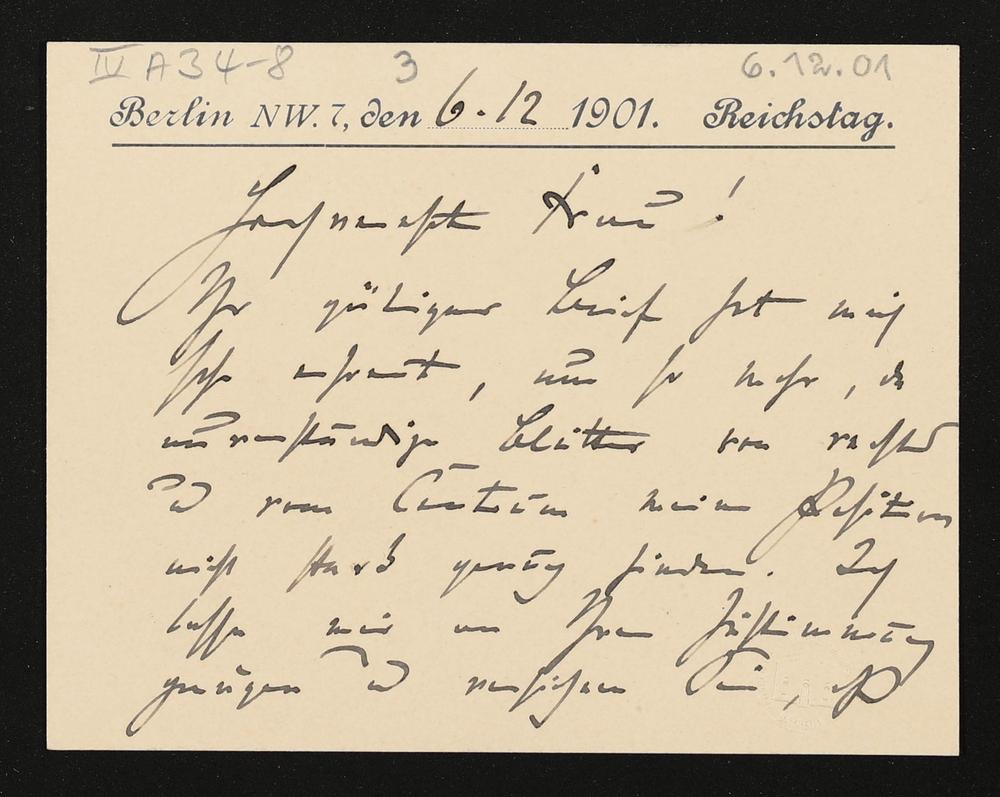 IV A 34-8 3 6.12.01
Berlin NW. 7, den 6.12 1901. Reichstag.
Hochverehrte Frau!
Ihr gütiger Brief hat mich
sehr erfreut, um so mehr, da
unverständige Blätter von rechts
u vom Centrum meine Position
nicht stark genug finden. Ich
lasse mir an Ihrer Zustimmung
genügen u versichere Sie, daß